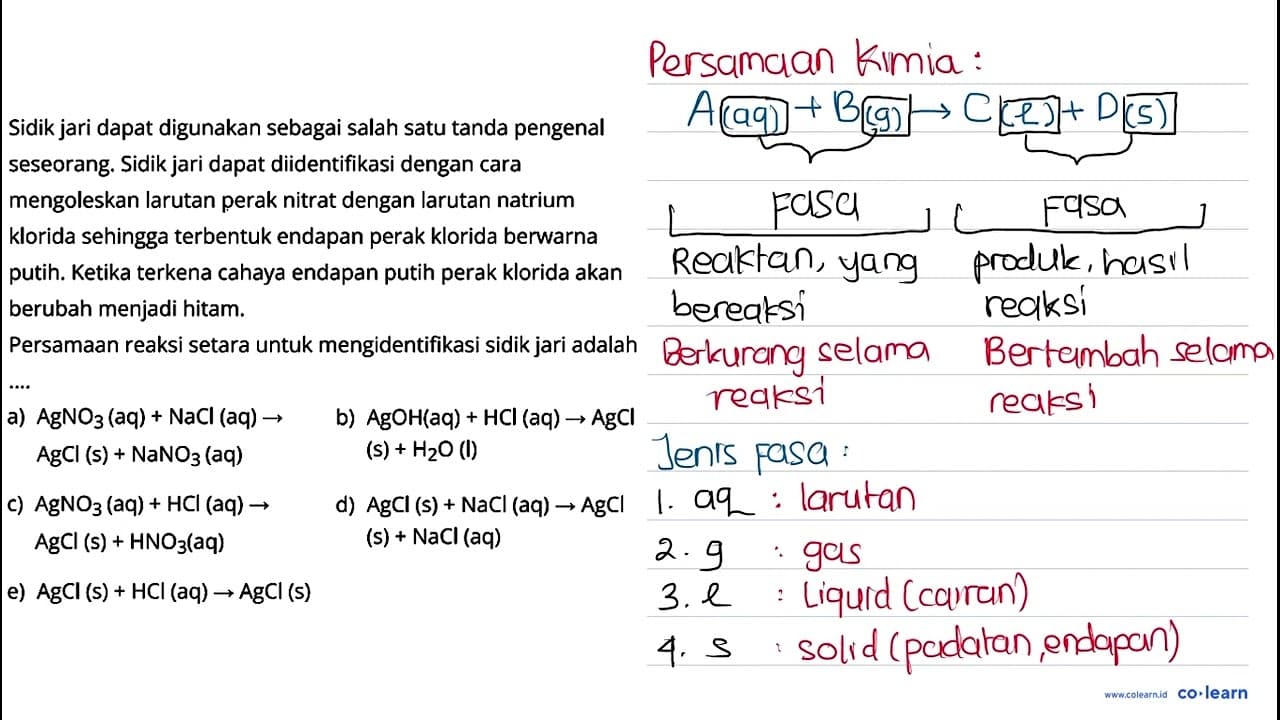 Sidik jari dapat digunakan sebagai salah satu tanda pengenal
seseorang. Sidik jari dapat diidentifikasi dengan cara
mengoleskan larutan perak nitrat dengan larutan natrium
klorida sehingga terbentuk endapan perak klorida berwarna
putih. Ketika terkena cahaya endapan putih perak klorida akan
berubah menjadi hitam.
Persamaan reaksi setara untuk mengidentifikasi sidik jari adalah
....
a) AgNO₃ (aq) + NaCl (aq) →
AgCl (s) + NaNO₃ (aq)
b) AgOH(aq) + HCl (aq) → AgCl
(s) + H₂O (l)
c) AgNO₃ (aq) + HCl (aq) →
AgCl (s) + HNO₃(aq)
d) AgCl (s) + NaCl (aq) → AgCl
(s) + NaCl (aq)
e) AgCl (s) + HCl (aq) → AgCl (s)
Persamaan Kimia :
A(aq) + B(g) → C(l) + D(s)
Fasa Fasa
Reaktan, yang
bereaksi
produk, hasil
reaksi
Berkurang selama
reaksi
Bertambah selama
reaksi
Jenis fasa :
1. aq : larutan
2. g : gas
3. l : Liquid (cairan)
4. s : solid (padatan, endapan)
www.colearn.id co·learn